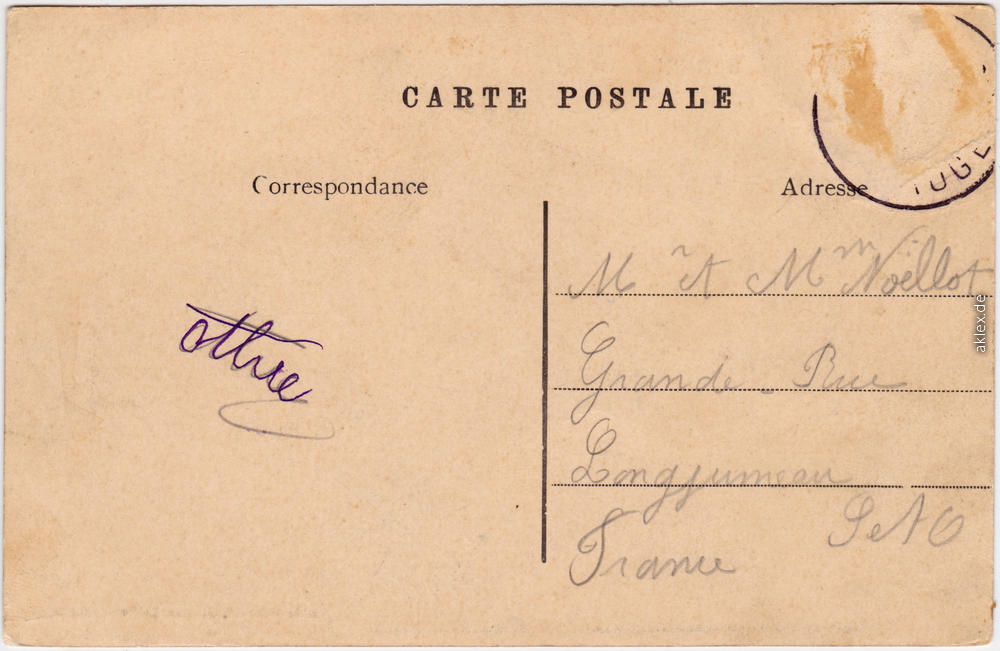 CARTE POSTALE
Correspondance
Adresse
M r et M Mm Noëllot
Grande Rue
Longjumeau
S et O
France
aklex.de